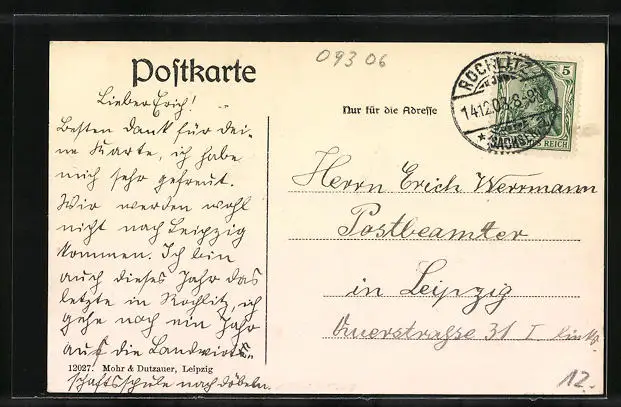 093 06
Postkarte
Nur für die Adresse
ROCHLITZ
14.12.08.8-9V.
* (SACHSEN)
5
REICH
Lieber Erich!
Besten Dank für dei-
ne Karte, ich habe
mich sehr gefreut.
Wir werden wohl
nicht nach Leipzig
kommen. Ich bin
auch dieses Jahr das
letzte in Rochlitz, ich
gehe noch ein Jahr
auf die Landwirt-
schaftsschule nach Döbeln.
12027. Mohr & Dutzauer, Leipzig
Herrn Erich Werrmann
Postbeamter
in Leipzig
Querstrasse 31 I links.
12.-